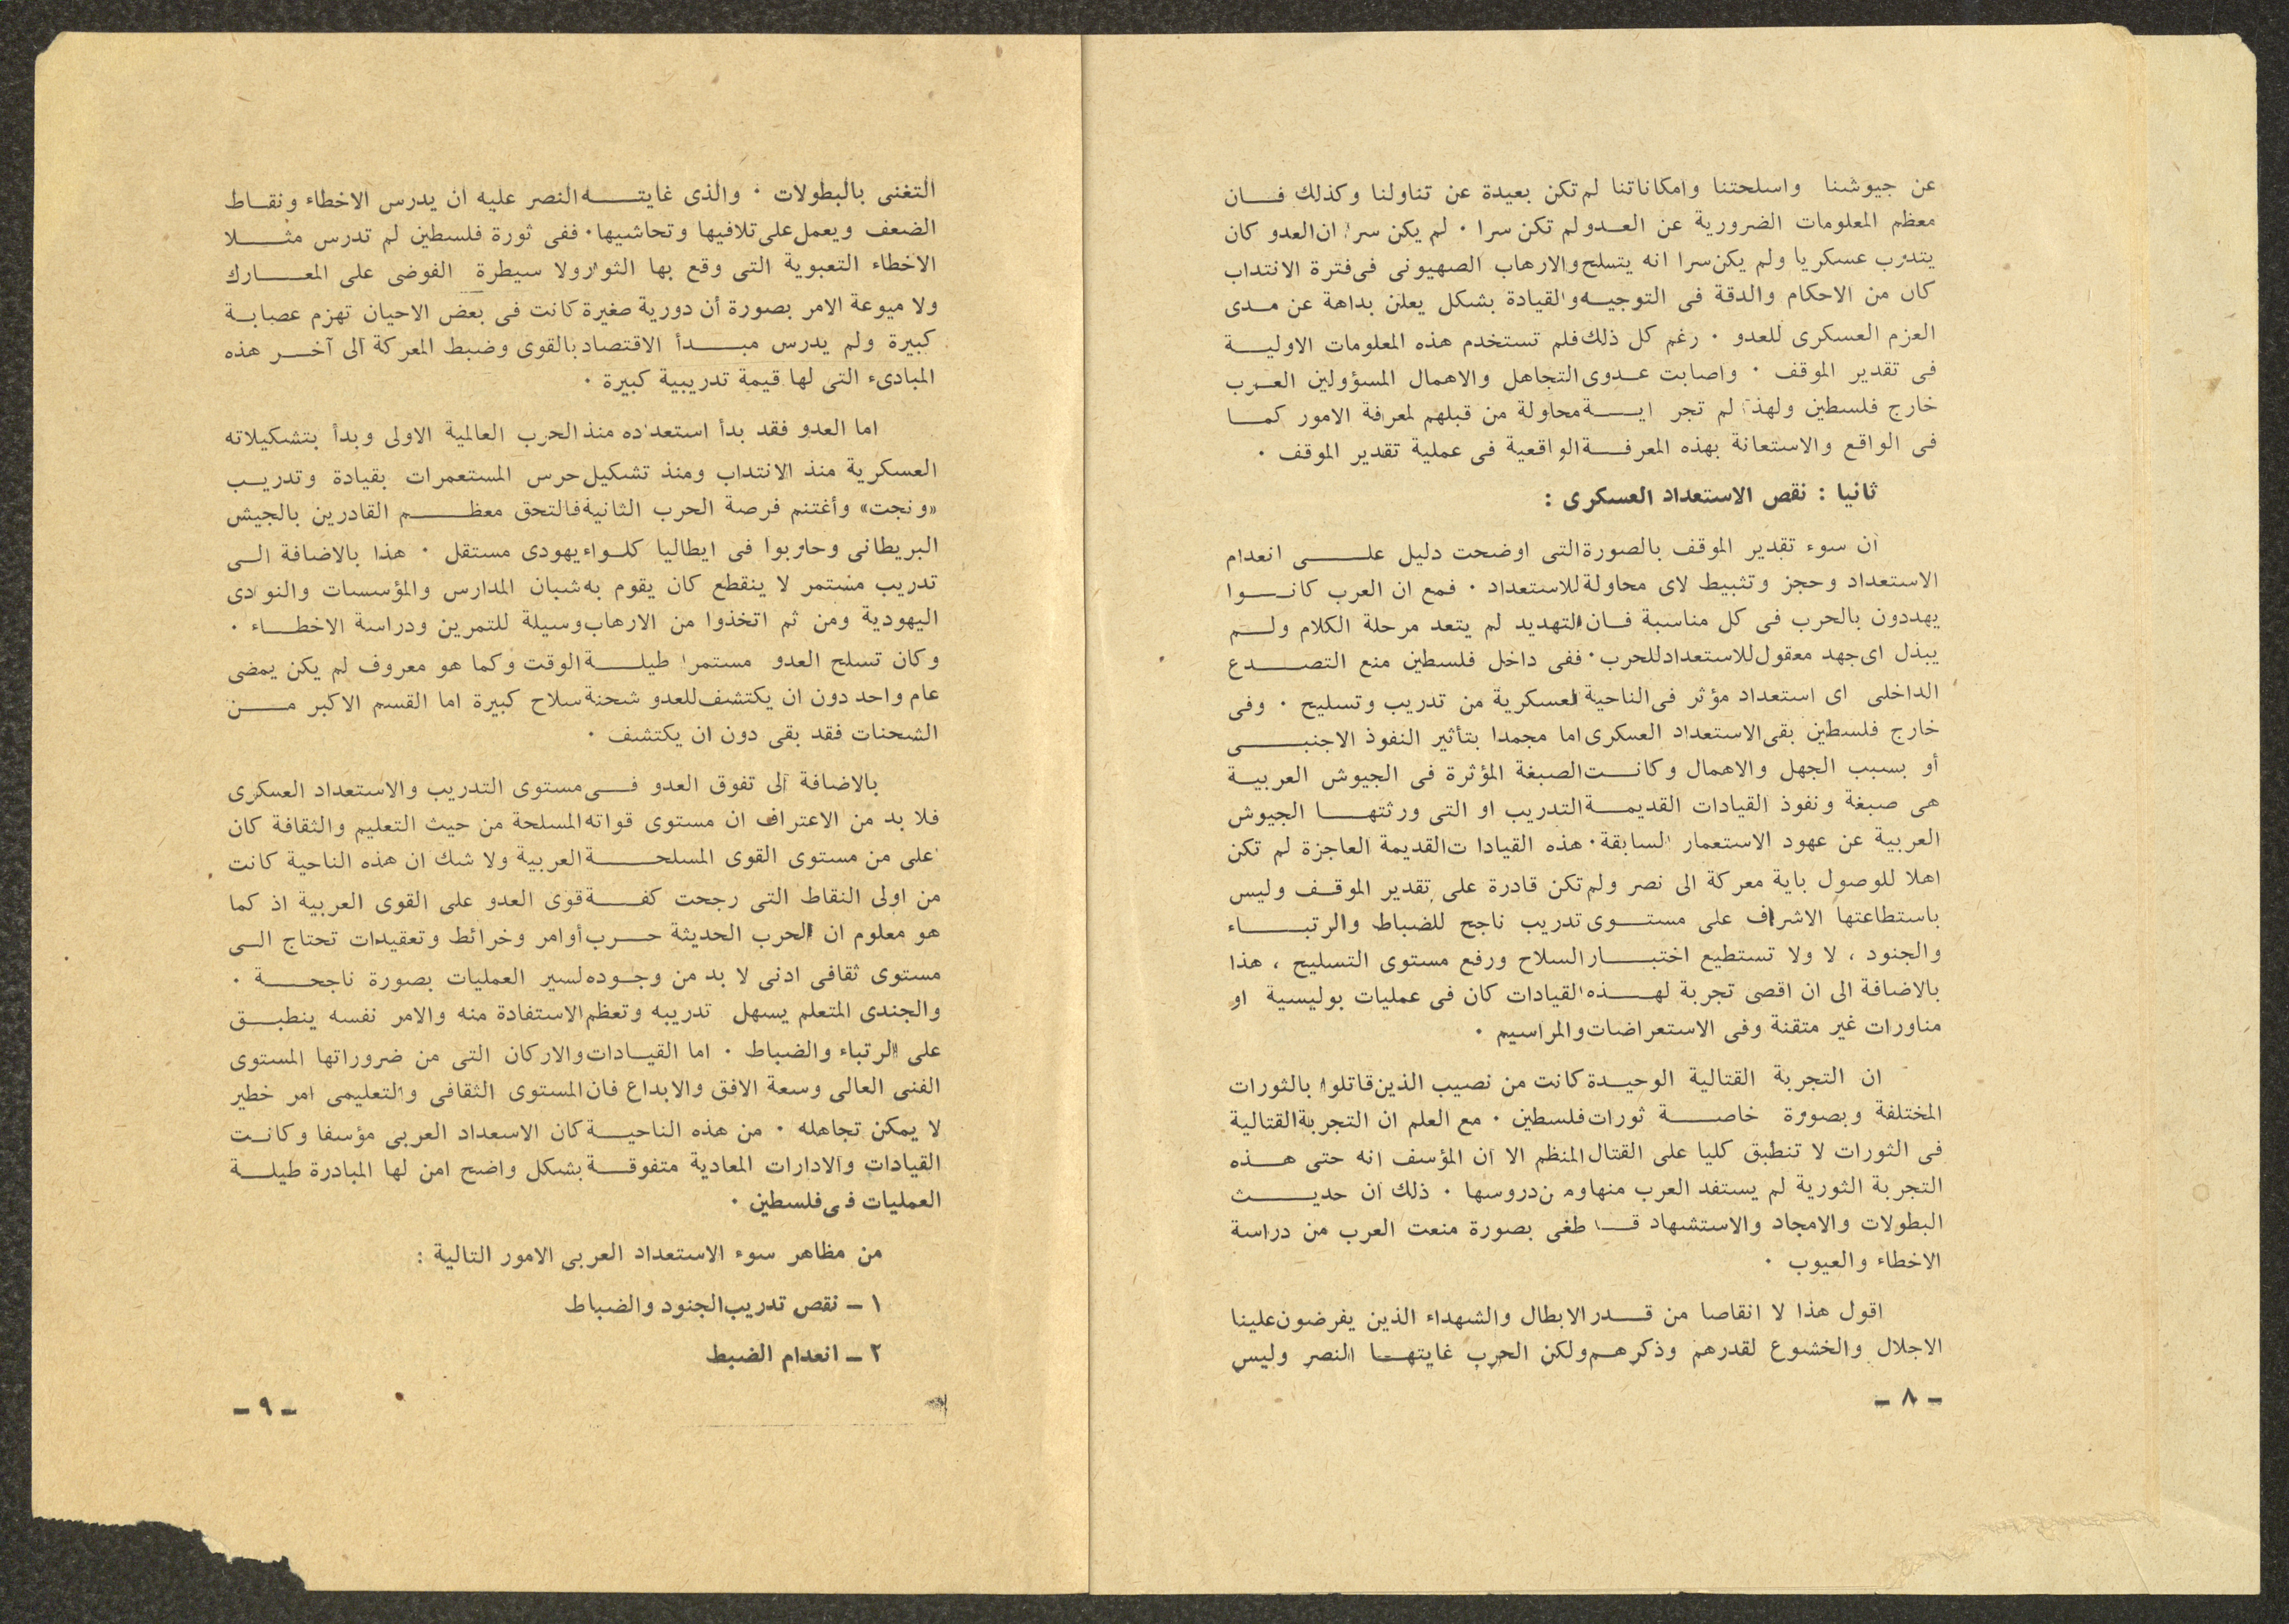 عن جيوشنا واسلحتنا وامكاناتنا لم تكن بعيدة عن تناولنا وكذلك فان
معظم المعلومات الضرورية عن العدو لم تكن سرا . لم يكن سرا ان العدو كان
يتدرب عسكريا ولم يكن سرا انه يتسلح والارهاب الصهيونى فى فترة الانتداب
كان من الاحكام والدقة فى التوجيه والقيادة بشكل يعلن بداهة عن مدى
العزم العسكرى للعدو . رغم كل ذلك فلم تستخدم هذه المعلومات الاولية
فى تقدير الموقف . واصابت عدوى التجاهل والاهمال المسؤولين العرب
خارج فلسطين ولهذا لم تجر اية محاولة من قبلهم لمعرفة الامور كما
فى الواقع والاستعانة بهذه المعرفة الواقعية فى عملية تقدير الموقف .
ثانيا : نقص الاستعداد العسكرى :
ان سوء تقدير الموقف بالصورة التى اوضحت دليل على انعدام
الاستعداد وحجز وتثبيط لاى محاولة للاستعداد . فمع ان العرب كانوا
يهددون بالحرب فى كل مناسبة فان التهديد لم يتعد مرحلة الكلام ولم
يبذل اى جهد معقول للاستعداد للحرب . ففى داخل فلسطين منع التصدع
الداخلى اى استعداد مؤثر فى الناحية العسكرية من تدريب وتسليح . وفى
خارج فلسطين بقى الاستعداد العسكرى اما مجمدا بتأثير النفوذ الاجنبى
أو بسبب الجهل والاهمال وكانت الصبغة المؤثرة فى الجيوش العربية
هى صبغة ونفوذ القيادات القديمة التدريب او التى ورثتها الجيوش
العربية عن عهود الاستعمار السابقة . هذه القيادات القديمة العاجزة لم تكن
اهلا للوصول باية معركة الى نصر ولم تكن قادرة على تقدير الموقف وليس
باستطاعتها الاشراف على مستوى تدريب ناجح للضباط والرتباء
والجنود ، لا ولا تستطيع اختبار السلاح ورفع مستوى التسليح ، هذا
بالاضافة الى ان اقصى تجربة لهذه القيادات كان فى عمليات بوليسية او
مناورات غير متقنة وفى الاستعراضات والمراسيم .
ان التجربة القتالية الوحيدة كانت من نصيب الذين قاتلوا بالثورات
المختلفة وبصورة خاصة ثورات فلسطين . مع العلم ان التجربة القتالية
فى الثورات لا تنطبق كليا على القتال المنظم الا ان المؤسف انه حتى هذه
التجربة الثورية لم يستفد العرب منها ومن دروسها . ذلك ان حديث
البطولات والامجاد والاستشهاد قد طغى بصورة منعت العرب من دراسة
الاخطاء والعيوب .
اقول هذا لا انقاصا من قدر الابطال والشهداء الذين يفرضون علينا
الاجلال والخشوع لقدرهم وذكرهم ولكن الحرب غايتها النصر وليس
- ٨ -
التغنى بالبطولات . والذى غايته النصر عليه ان يدرس الاخطاء ونقاط
الضعف ويعمل على تلافيها وتحاشيها . ففى ثورة فلسطين لم تدرس مثلا
الاخطاء التعبوية التى وقع بها الثوار ولا سيطرة الفوضى على المعارك
ولا ميوعة الامر بصورة أن دورية صغيرة كانت فى بعض الاحيان تهزم عصابة
كبيرة ولم يدرس مبدأ الاقتصاد بالقوى وضبط المعركة الى آخر هذه
المبادىء التى لها قيمة تدريبية كبيرة .
اما العدو فقد بدأ استعداده منذ الحرب العالمية الاولى وبدأ بتشكيلاته
العسكرية منذ الانتداب ومنذ تشكيل حرس المستعمرات بقيادة وتدريب
«ونجت» وأغتنم فرصة الحرب الثانية فالتحق معظم القادرين بالجيش
البريطانى وحاربوا فى ايطاليا كلواء يهودى مستقل . هذا بالاضافة الى
تدريب مستمر لا ينقطع كان يقوم به شبان المدارس والمؤسسات والنوادى
اليهودية ومن ثم اتخذوا من الارهاب وسيلة للتمرين ودراسة الاخطاء .
وكان تسلح العدو مستمرا طيلة الوقت وكما هو معروف لم يكن يمضى
عام واحد دون ان يكتشف للعدو شحنة سلاح كبيرة اما القسم الاكبر من
الشحنات فقد بقى دون ان يكتشف .
بالاضافة الى تفوق العدو فى مستوى التدريب والاستعداد العسكرى
فلا بد من الاعتراف ان مستوى قواته المسلحة من حيث التعليم والثقافة كان
اعلى من مستوى القوى المسلحة العربية ولا شك ان هذه الناحية كانت
من اولى النقاط التى رجحت كفة قوى العدو على القوى العربية اذ كما
هو معلوم ان الحرب الحديثة حرب أوامر وخرائط وتعقيدات تحتاج الى
مستوى ثقافى ادنى لا بد من وجوده لسير العمليات بصورة ناجحة .
والجندى المتعلم يسهل تدريبه وتعظم الاستفادة منه والامر نفسه ينطبق
على الرتباء والضباط . اما القيادات والاركان التى من ضروراتها المستوى
الفنى العالى وسعة الافق والابداع فان المستوى الثقافى والتعليمى امر خطير
لا يمكن تجاهله . من هذه الناحية كان الاسعداد العربى مؤسفا وكانت
القيادات والادارات المعادية متفوقة بشكل واضح امن لها المبادرة طيلة
العمليات فى فلسطين .
من مظاهر سوء الاستعداد العربى الامور التالية :
١ - نقص تدريب الجنود والضباط
٢ - انعدام الضبط
- ٩ -